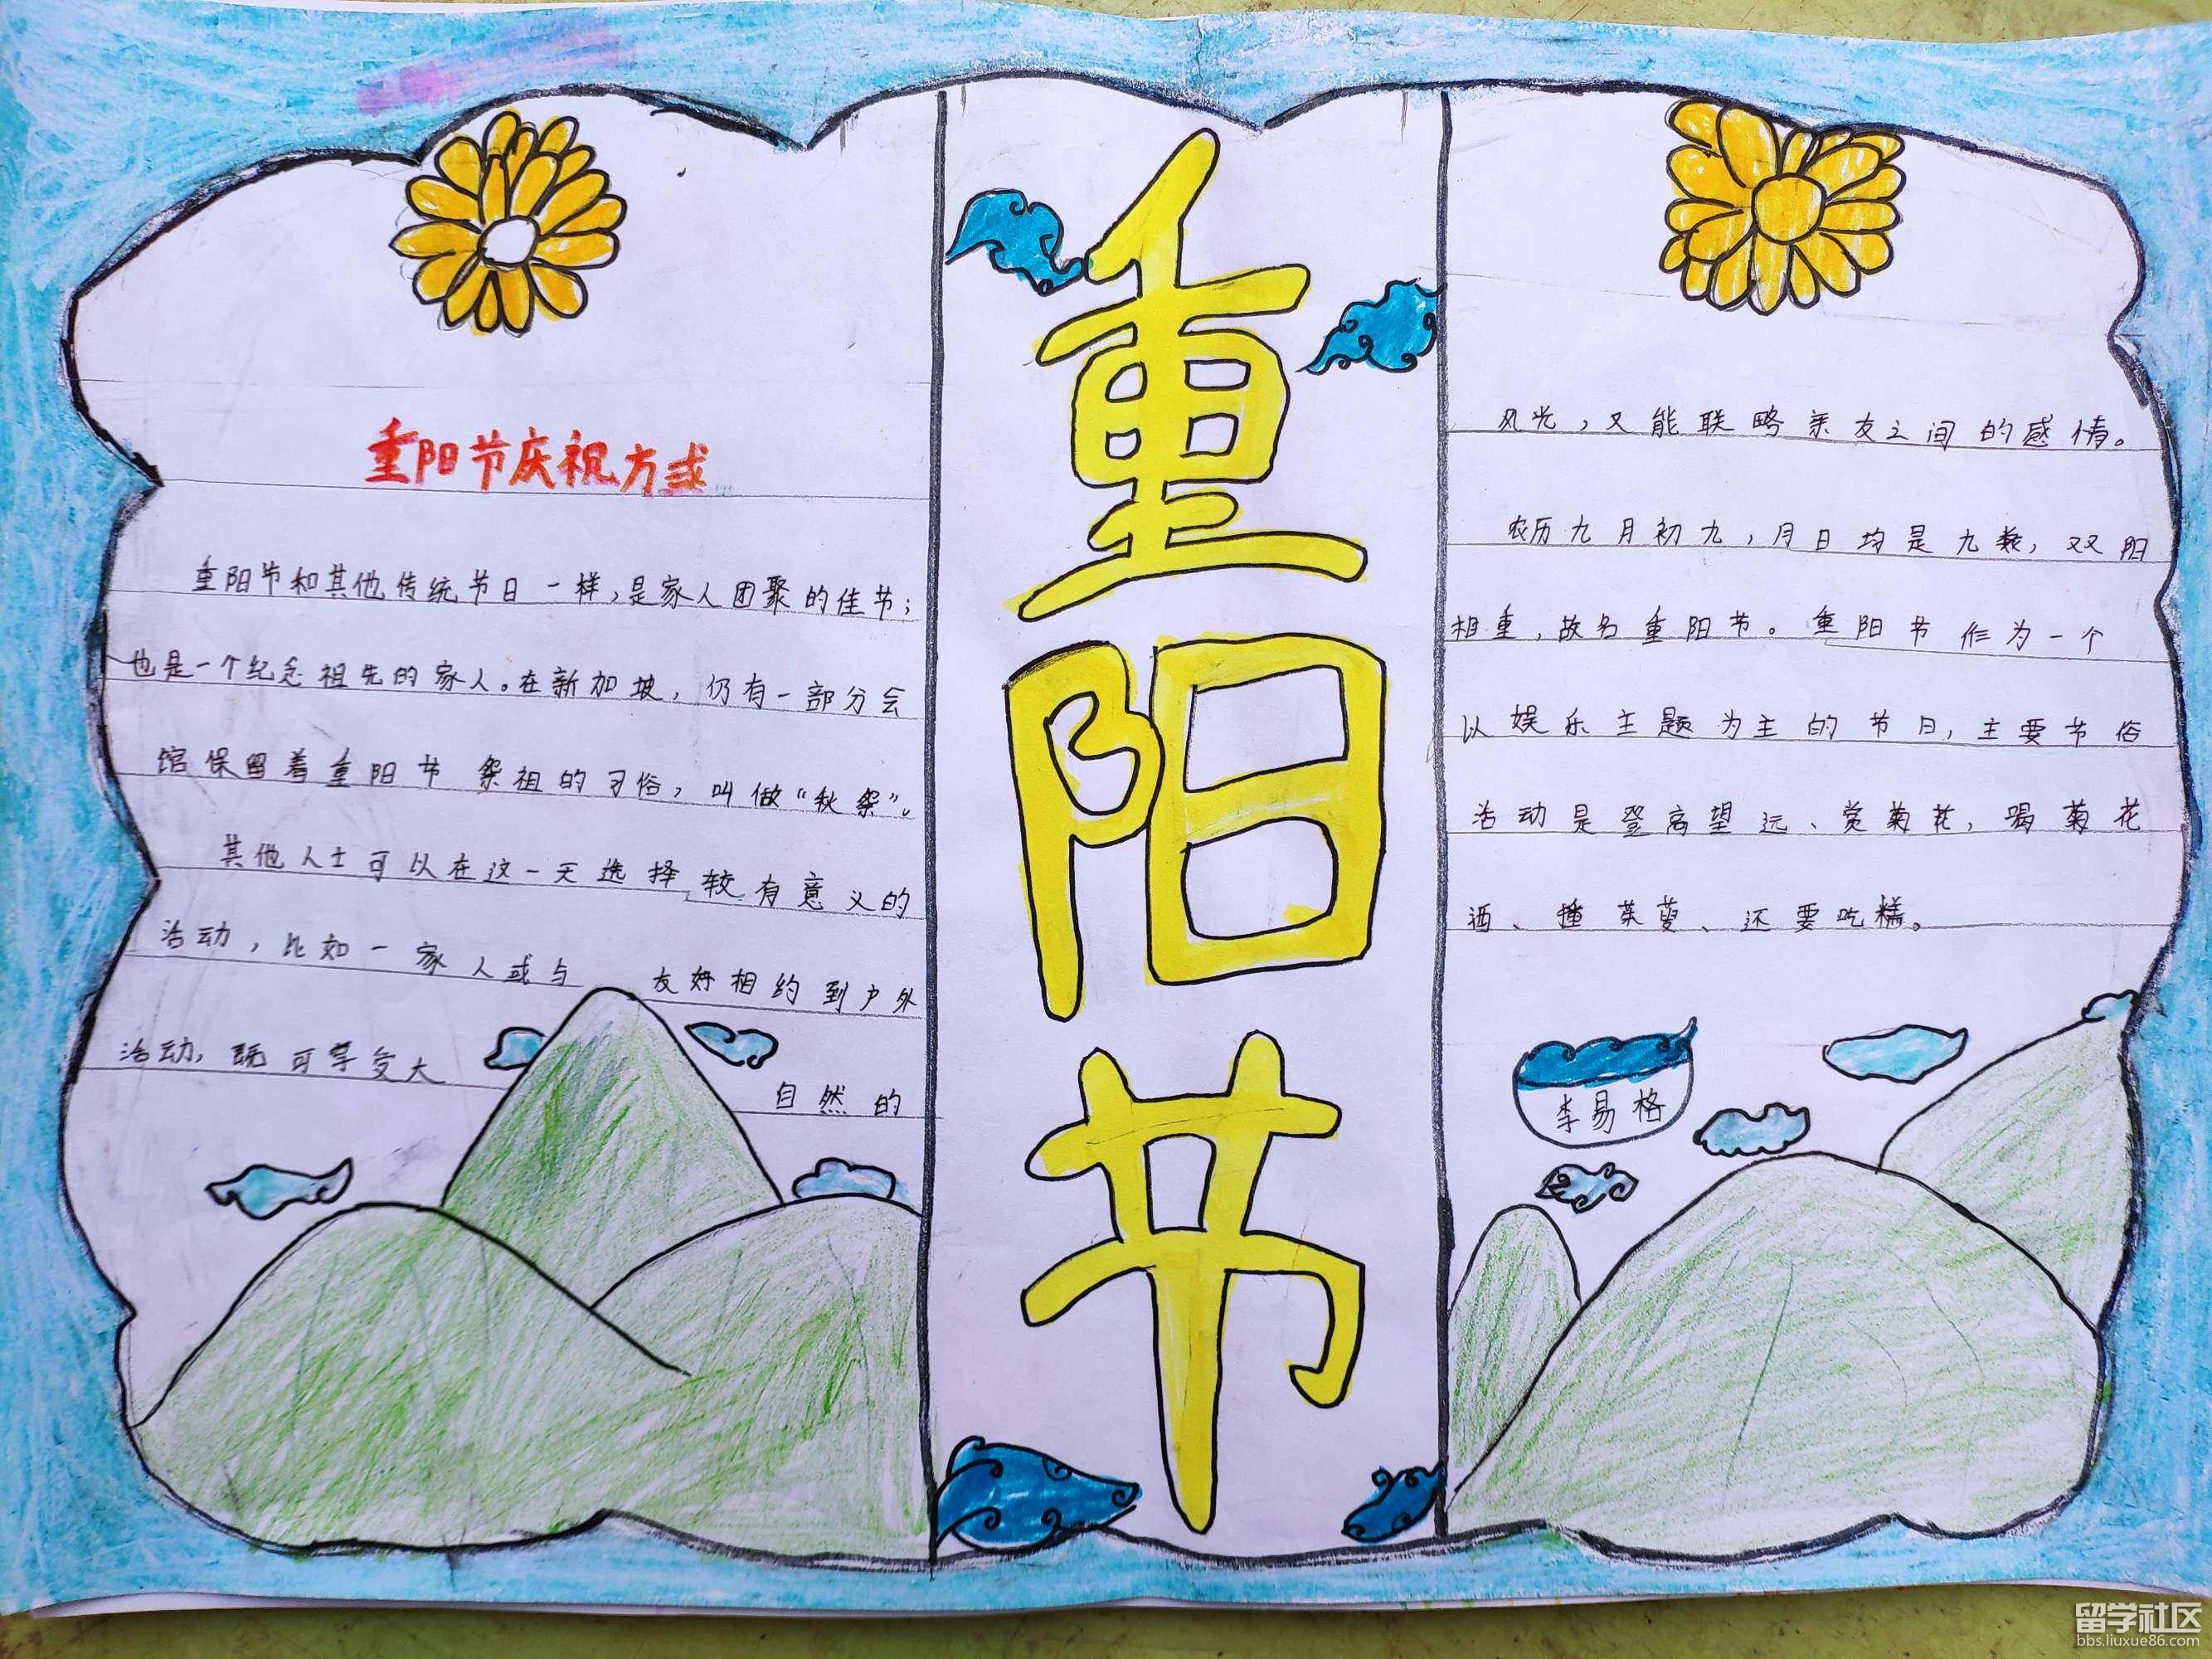 重阳节庆祝方式
重阳节和其他传统节日一样,是家人团聚的佳节;
也是一个纪念祖先的家人。在新加坡,仍有一部分会
馆保留着重阳节祭祖的习俗,叫做“秋祭”。
其他人士可以在这一天选择较有意义的
活动,比如一家人或与友好相约到户外
活动,既可享受大自然的
重阳节
风光,又能联略亲友之间的感情。
农历九月初九,月日均是九数,双阳
相重,故名重阳节。重阳节作为一个
以娱乐主题为主的节日,主要节俗
活动是登高望远、赏菊花,喝菊花
酒、插茱萸、还要吃糕。
李易格
留学社区
bbs.liuxue86.com